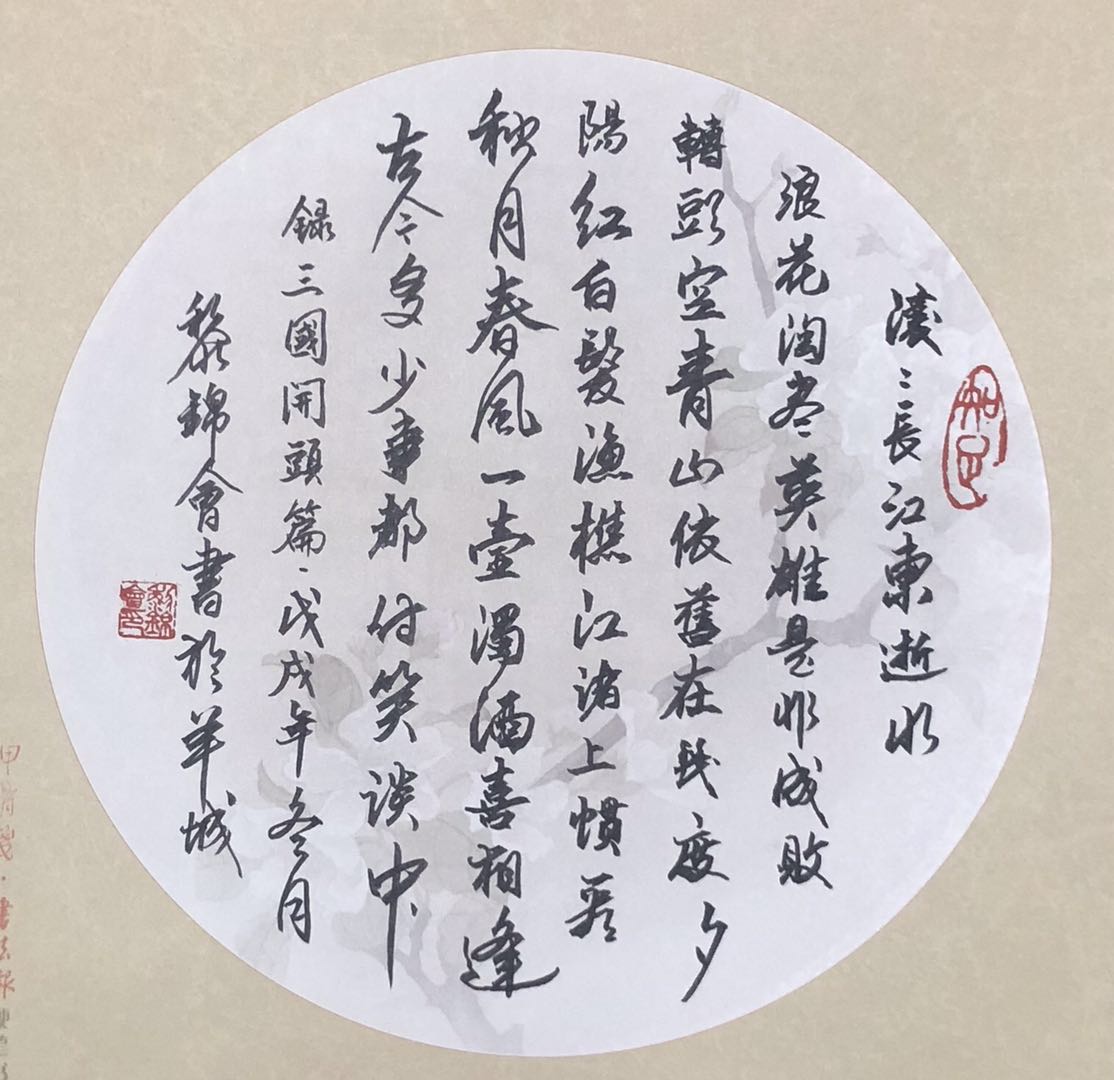 滚〻長江東逝水
浪花淘尽英雄是非成敗
轉頭空青山依舊在幾度夕
陽紅白髮漁樵江渚上慣看
秋月春風一壺濁酒喜相逢
古今多少事都付笑談中
録三國開頭篇、戊戌年冬月
黎錦會書於羊城
知足
黎錦會印
甲骨箋·書法報